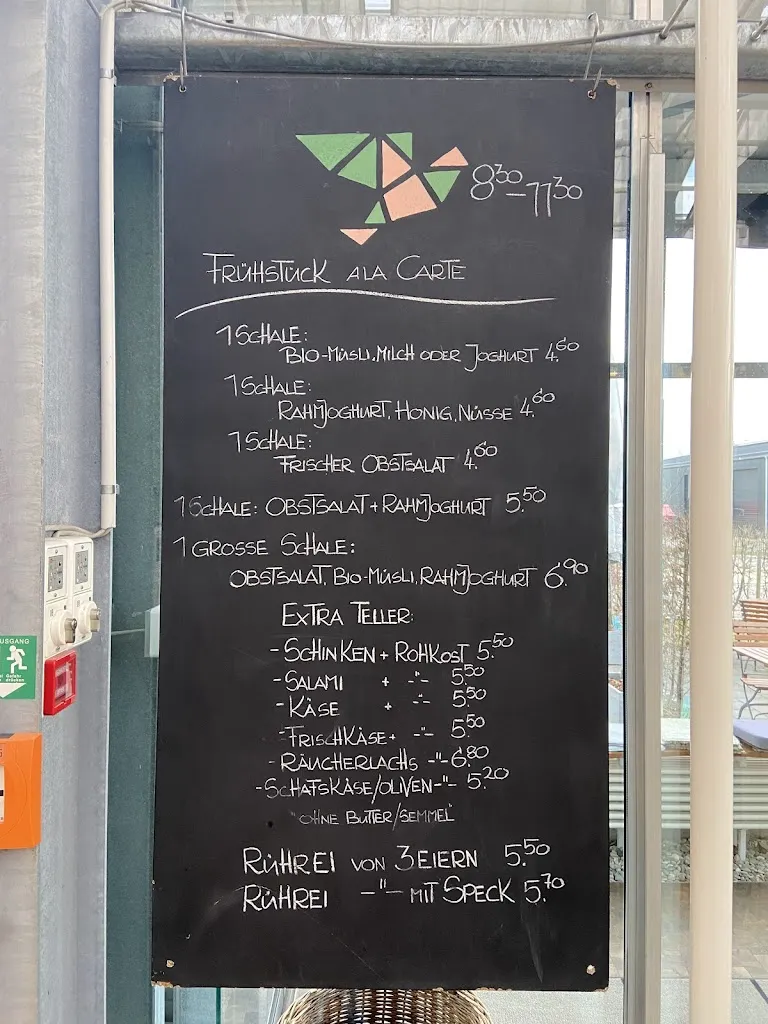 8³⁰–11³⁰
FRÜHSTÜCK ALA CARTE
1 SCHALE:
BIO-MÜSLI, MILCH ODER JOGHURT 4.⁶⁰
1 SCHALE:
RAHMJOGHURT, HONIG, NÜSSE 4.⁶⁰
1 SCHALE:
FRISCHER OBSTSALAT 4.⁶⁰
1 SCHALE: OBSTSALAT + RAHMJOGHURT 5.⁵⁰
1 GROSSE SCHALE:
OBSTSALAT, BIO-MÜSLI, RAHMJOGHURT 6.⁹⁰
EXTRA TELLER:
- SCHINKEN + ROHKOST 5.⁵⁰
- SALAMI + -"- 5.⁵⁰
- KÄSE + -"- 5.⁵⁰
- FRISCHKÄSE + -"- 5.⁵⁰
- RÄUCHERLACHS -"- 6.⁸⁰
- SCHAFSKÄSE/OLIVEN -"- 5.²⁰
"OHNE BUTTER/SEMMEL"
RÜHREI VON 3 EIERN 5.⁵⁰
RÜHREI -"- MIT SPECK 5.⁷⁰
USGANG